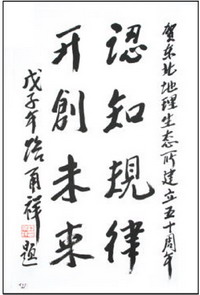 贺东北地理生态所建立五十周年
認知規律
开創未来
戊子年 培甬祥题